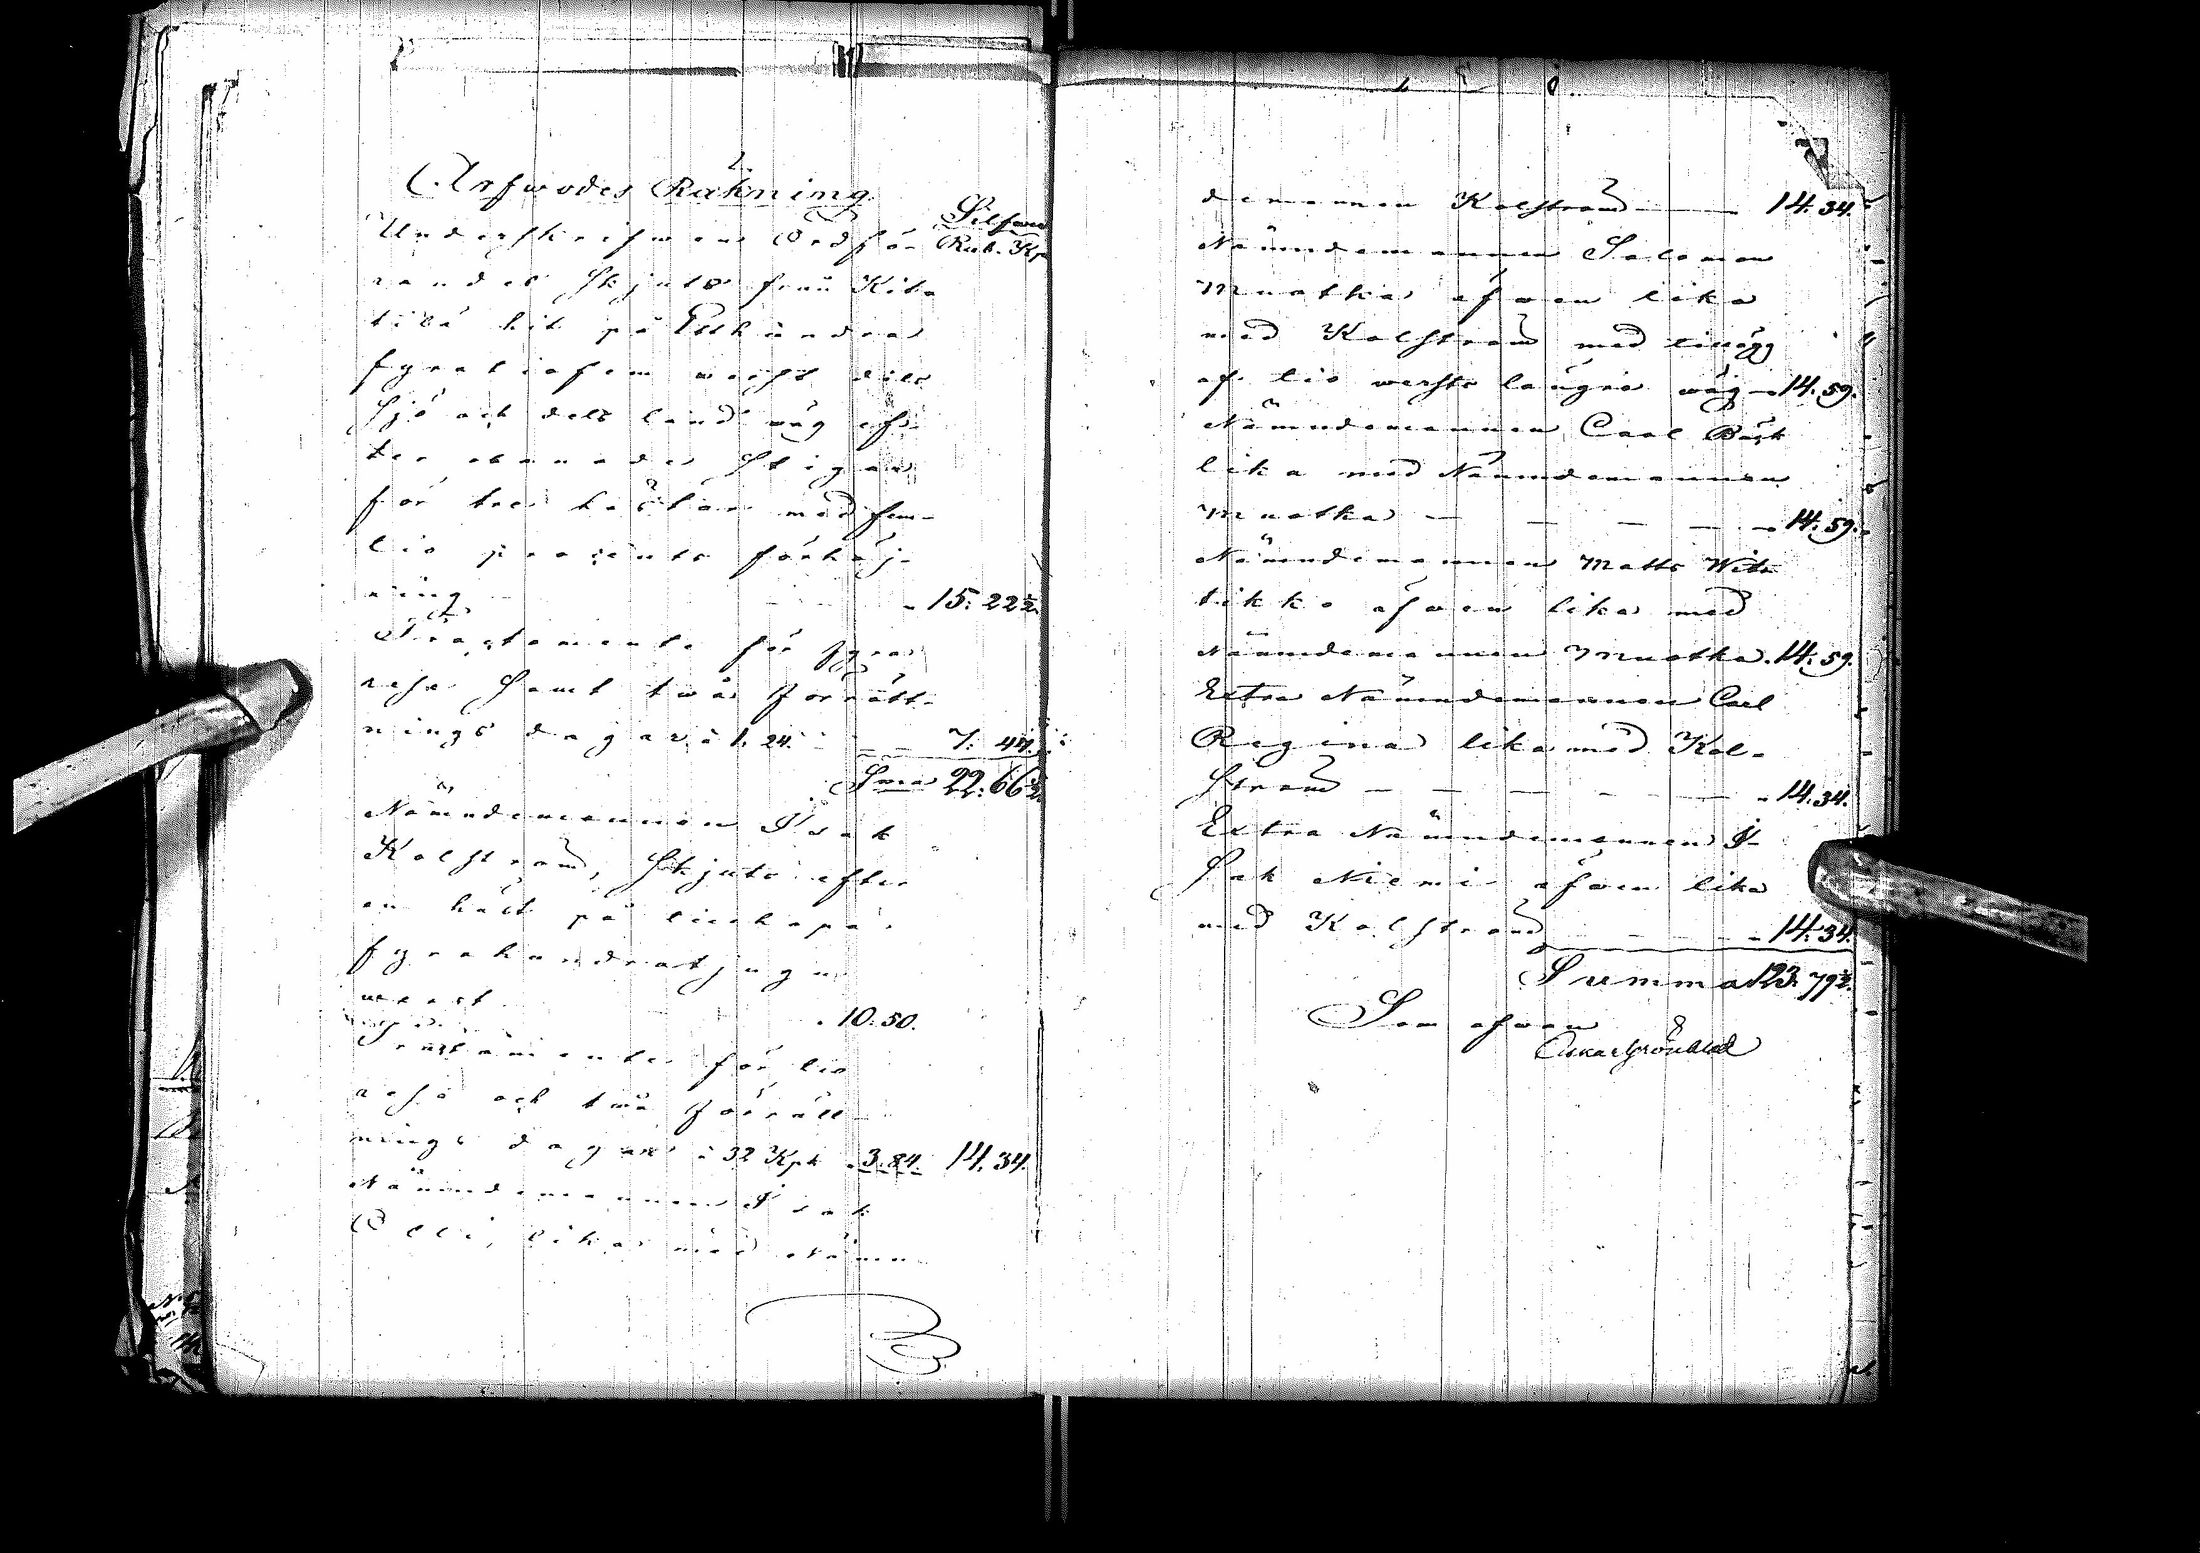 Arfwodes Räkning.
Silfwer
Underskrifwen Ordfö- Rub. Kp
randes skjuts från Kitt-
tilä hit på Etthundra
fyratiofem werst dels
sjö och dels landwäg ef-
ter obanade stigar
för tre hästar med fem-
tio procents förhöj-
ning 15. 22½
Tractamente för fyra
rese samt twå förrätt-
nings dagar à 1. 24. 7. 44.
Sma 22. 66½
Nämndemannen Isak
Kolström, Skjuts efter
en häst på
fyrahundratjugu
werst 10. 50.
Tractamente för tio
rese och twå förrätt-
nings dagar à 32 Kpk 3. 84. 14. 34.
Nämndemannen Isak
Olli, lika med Nämn-
demannen Kolström 14. 34.
Nämndemannen Salomon
Muotka äfwen lika
med Kolström med tillägg
af tio werste längre wäg 14. 59.
Nämndemannen Carl Bäck
lika med Nämndemannen
Muotka 14. 59.
Nämndemannen Matts Wit-
tikko äfwen lika med
Nämndemannen Muotka. 14. 59.
Extra Nämndemannen Carl
Regina lika med Kol-
ström 14. 34.
Extra Nämndemannen I-
sak Niemi äfwen lika
med Kolström 14. 34.
Summa 123. 79½.
Som ofwan
Oskar Grönblad